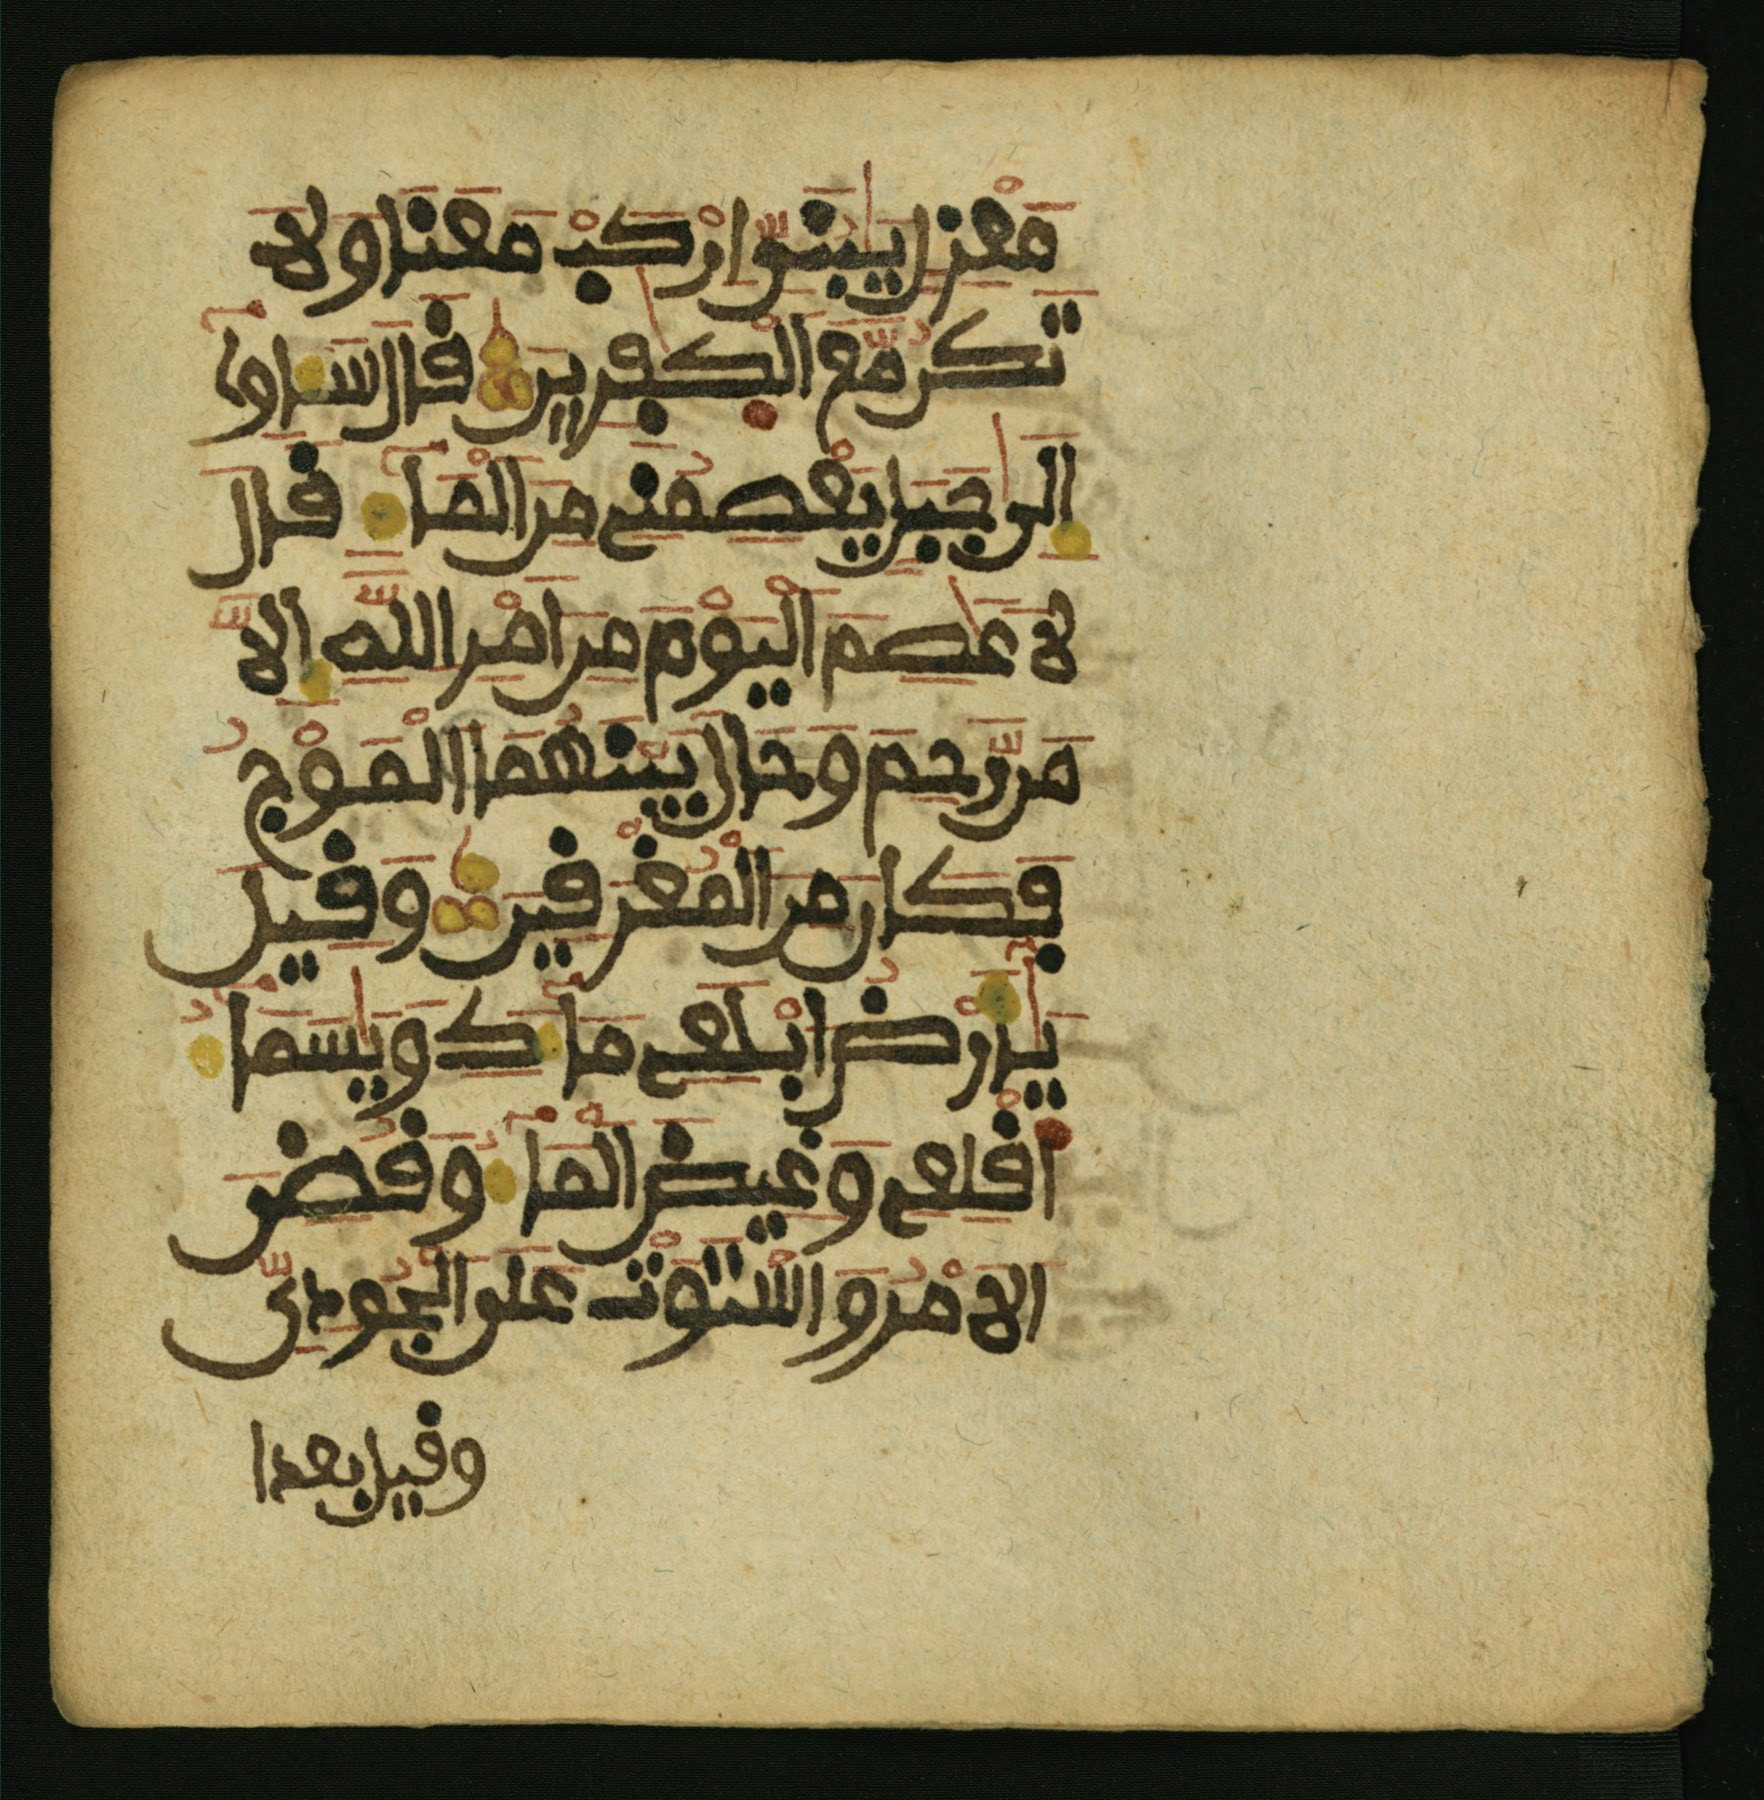 مَعْزِلٍ يَٰبُنَيِّ ارْكَب مَّعَنَا وَلَا
تَكُن مَّعَ الْكَٰفِرِينَ قَالَ سَـَٔاوِے
إِلَىٰ جَبَلٍ يَعْصِمُنِے مِنَ الْمَآءِ قَالَ
لَا عَاصِمَ الْيَوْمَ مِنَ امْرِ اللَّهِ إِلَّا
مَن رَّحِمَ وَحَالَ بَيْنَهُمَا الْمَوْجُ
فَكَانَ مِنَ الْمُغْرَقِينَ وَقِيلَ
يَٰٓأَرْضُ ابْلَعِے مَآءَكِ وَيَٰسَمَآءُ
أَقْلِعِے وَغِيضَ الْمَآءُ وَقُضِيَ
الَامْرُ وَاسْتَوَتْ عَلَى الْجُودِيِّ
وقيل بعدا